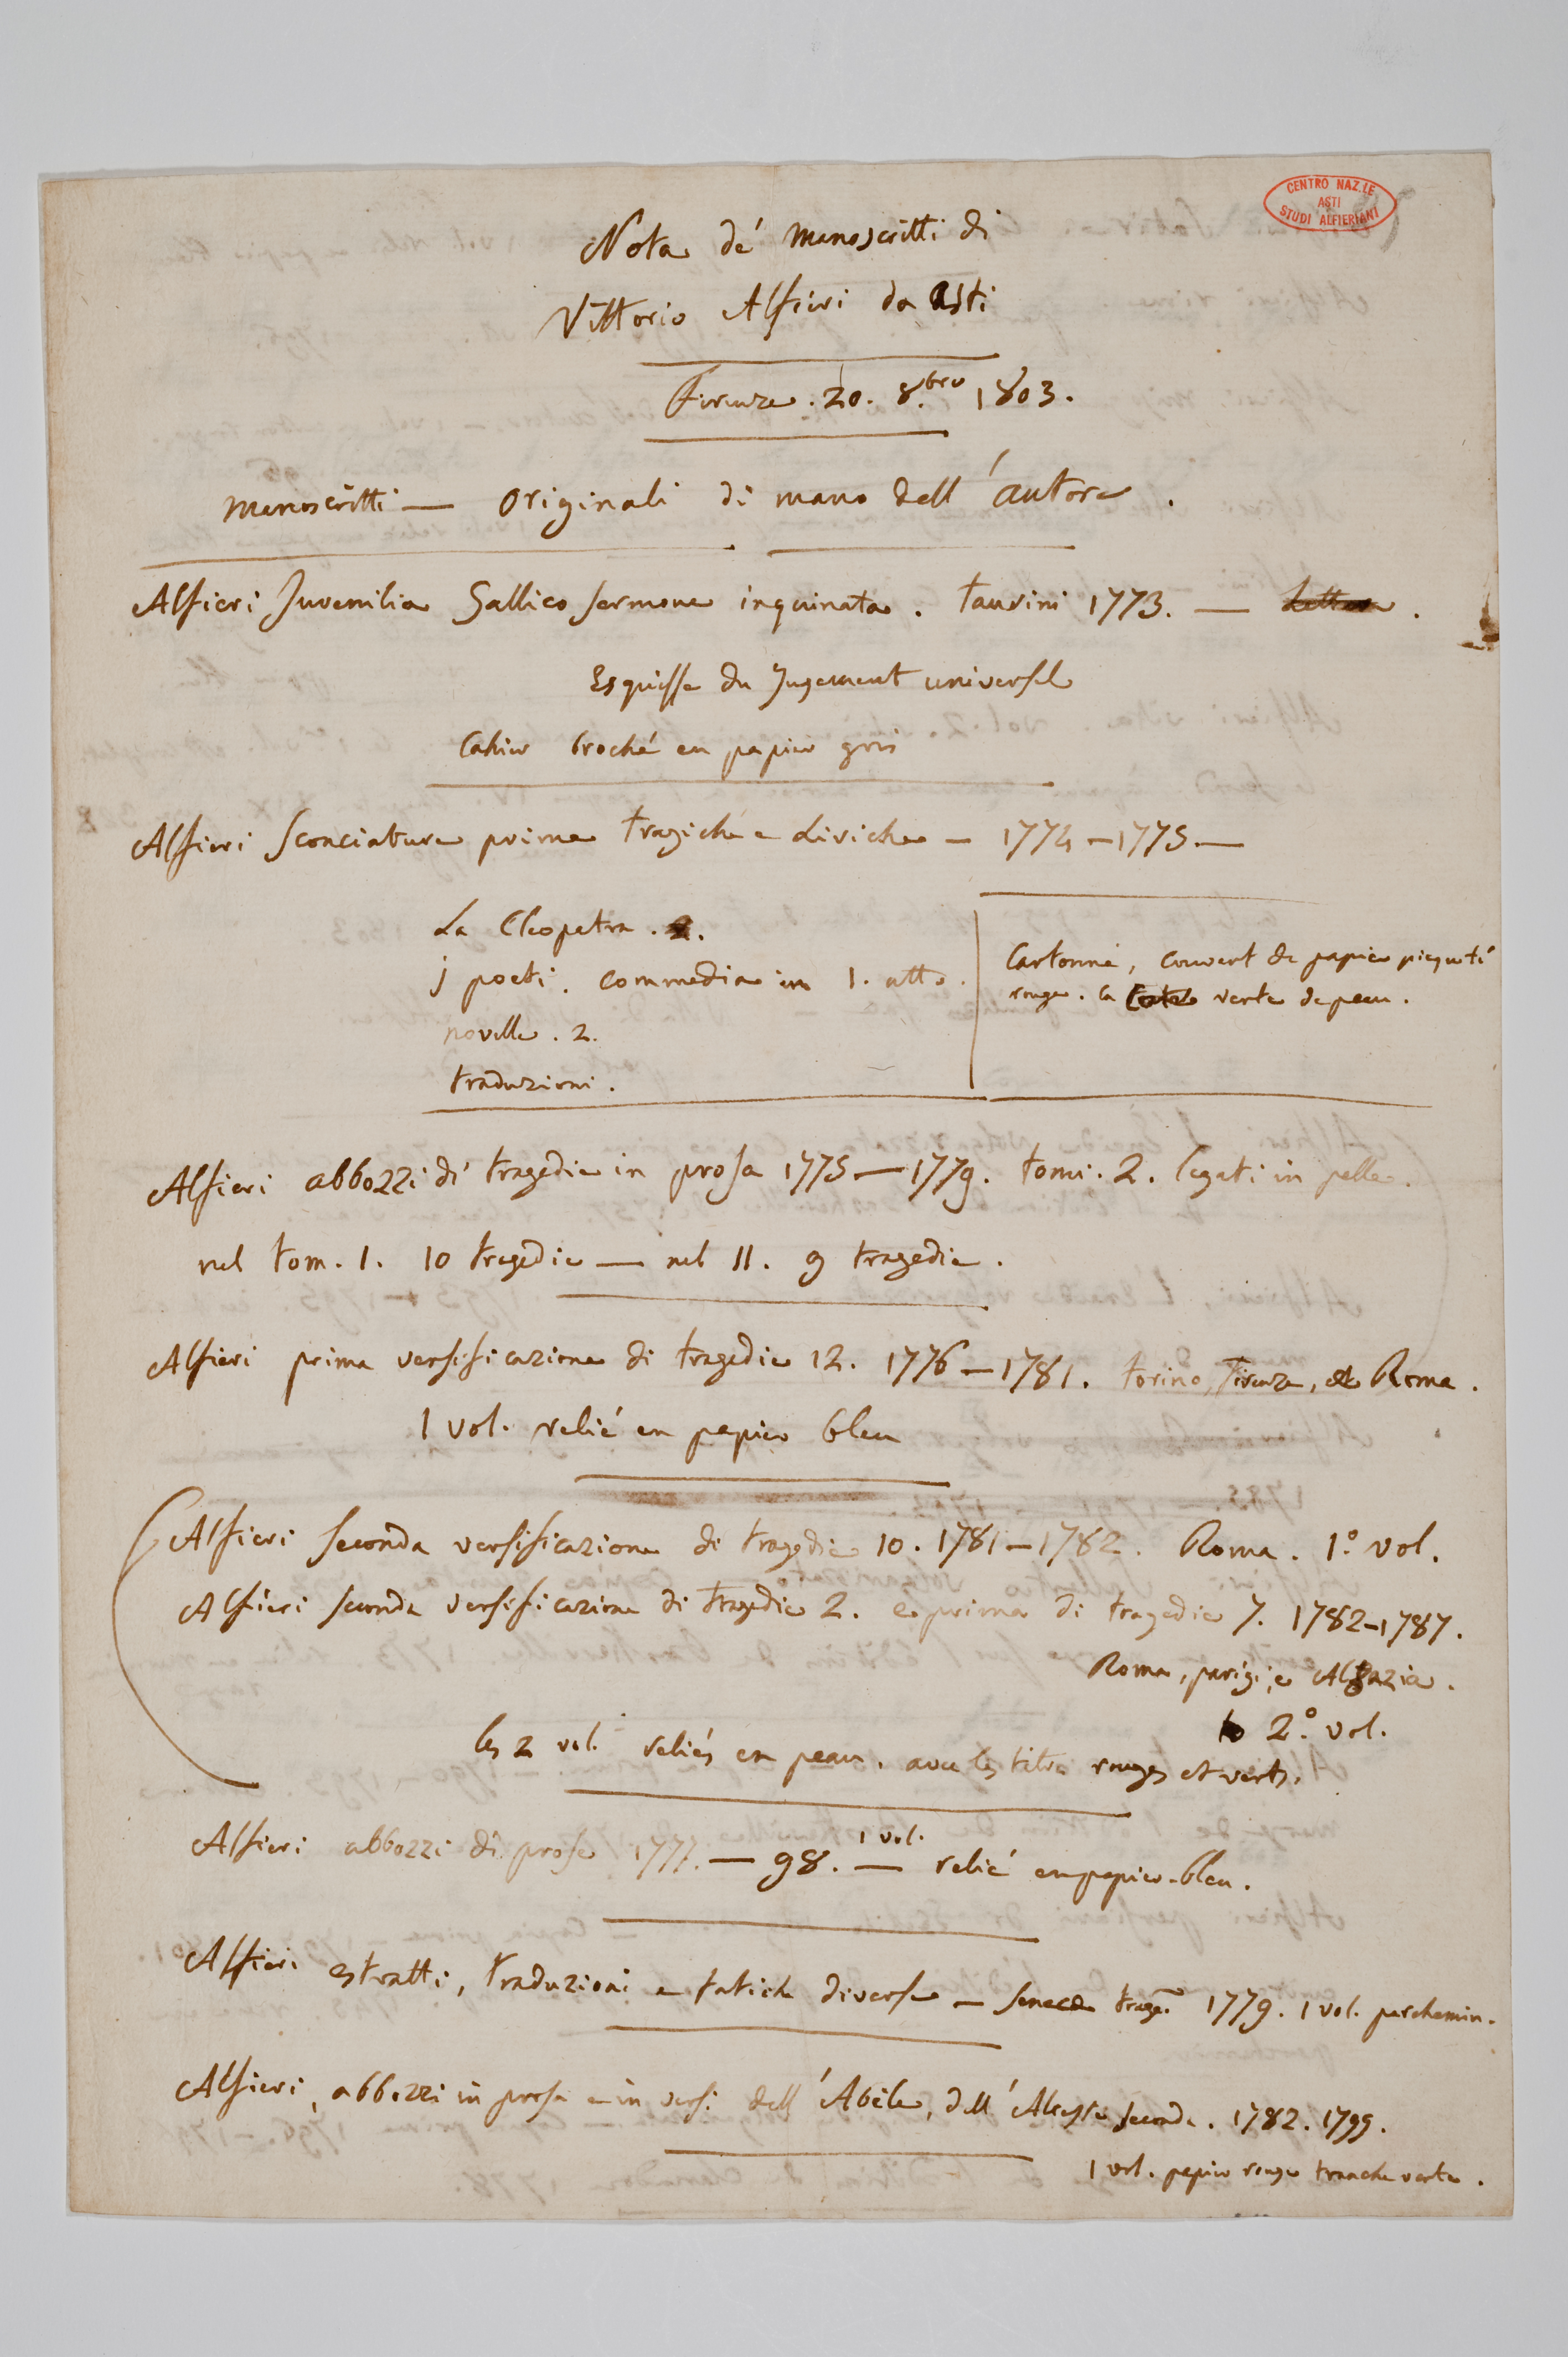 CENTRO NAZ.LE
ASTI
STUDI ALFIERIANI
Nota de' manoscritti di
Vittorio Alfieri da Asti
Firenze . 20. 8.bre 1803.
Manoscritti — originali di mano dell' autore .
Alfieri Juvenilia Gallico sermone inquinata . Taurini 1773. —
Esquisse du Jugement universel
Cahier broché en papier gris
Alfieri Sconciature prime tragiche e Liriche – 1774 – 1775 —
La Cleopatra .
j poeti . commedia in 1. atto .
novelle . 2.
traduzioni .
Cartonné, couvert de papier piqueté
rouge . la verte de peau .
Alfieri abbozzi di tragedie in prosa 1775 — 1779. tomi . 2 . legati in pelle .
nel tom . 1. 10 tragedie — nel II . 9 tragedie .
Alfieri prima versificazione di tragedie 12. 1776 – 1781. Torino, Firenze, e Roma .
1 vol. relié en papier bleu
Alfieri seconda versificazione di tragedie 10 . 1781 – 1782 . Roma . 1.° vol.
Alfieri seconda versificazione di tragedie 2. e prima di tragedie 7. 1782–1787.
Roma, parigi, e Alsazia .
2.° vol.
les 2 vol. reliés en peau . avec les titres rouges et verts.
Alfieri abbozzi di prose 1777. — 98. — 1 vol. relié en papier bleu .
Alfieri estratti, traduzioni e fatiche diverse – Seneca trage. 1779. 1 vol. parchemin .
Alfieri, abbozzi in prosa e in versi dell' Abele, dell' Alceste seconda . 1782. 1799.
1 vol. papier rouge tranche verte .